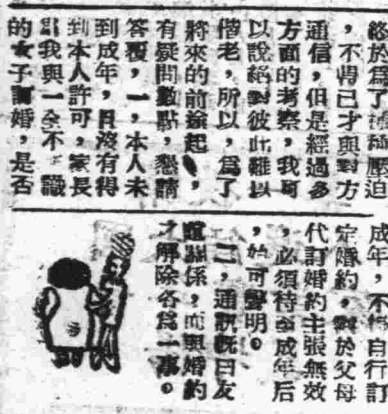 終於為了種種壓迫
，不得已才與對方
通信，但是經過多
方面的考察，我可
以說絕對彼此難以
偕老，所以，爲了
將來的前途起，
有疑問數點，懇請
答覆，一，本人未
到成年，且沒有得
到本人許可，家長
與我與一全不識
的女子訂婚，是否
成年，不得自行訂
定婚約，對於父母
代訂婚約主張無效
，必須待至成年后
，始可聲明。
二，通訊旣曰友
誼關係，而與婚約
之解除各爲一事。